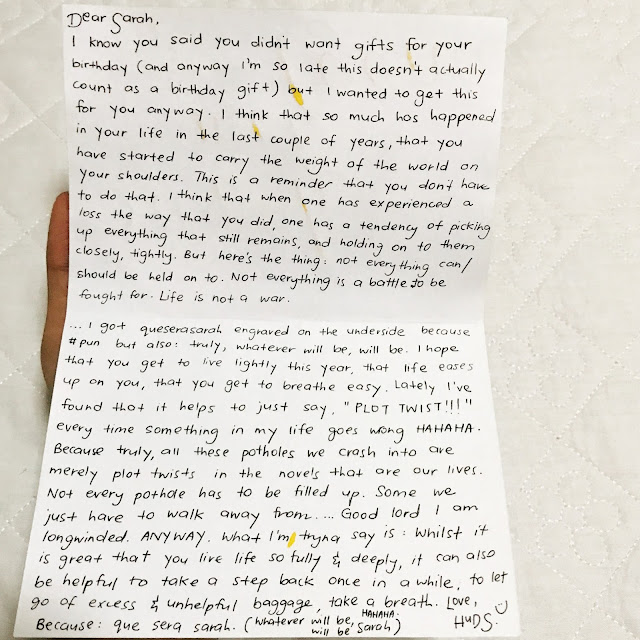 Dear Sarah,
I know you said you didn't want gifts for your
birthday (and anyway I'm so late this doesn't actually
count as a birthday gift) but I wanted to get this
for you anyway. I think that so much has happened
in your life in the last couple of years, that you
have started to carry the weight of the world on
your shoulders. This is a reminder that you don't have
to do that. I think that when one has experienced a
loss the way that you did, one has a tendency of picking
up everything that still remains, and holding on to them
closely, tightly. But here's the thing: not everything can/
should be held on to. Not everything is a battle to be
fought for. Life is not a war.
... I got queserasarah engraved on the underside because
#pun but also: truly, whatever will be, will be. I hope
that you get to live lightly this year, that life eases
up on you, that you get to breathe easy. Lately I've
found that it helps to just say, "PLOT TWIST!!!"
every time something in my life goes wrong HAHAHA.
Because truly, all these potholes we crash into are
merely plot twists in the novels that are our lives.
Not every pothole has to be filled up. Some we
just have to walk away from.... Good lord I am
longwinded. ANYWAY. What I'm tryna say is: whilst it
is great that you live life so fully & deeply, it can also
be helpful to take a step back once in a while, to let
go of excess & unhelpful baggage, take a breath. Love,
Because: que sera sarah. (whatever will be, will be sarah) HAHAHA.
HUDS.